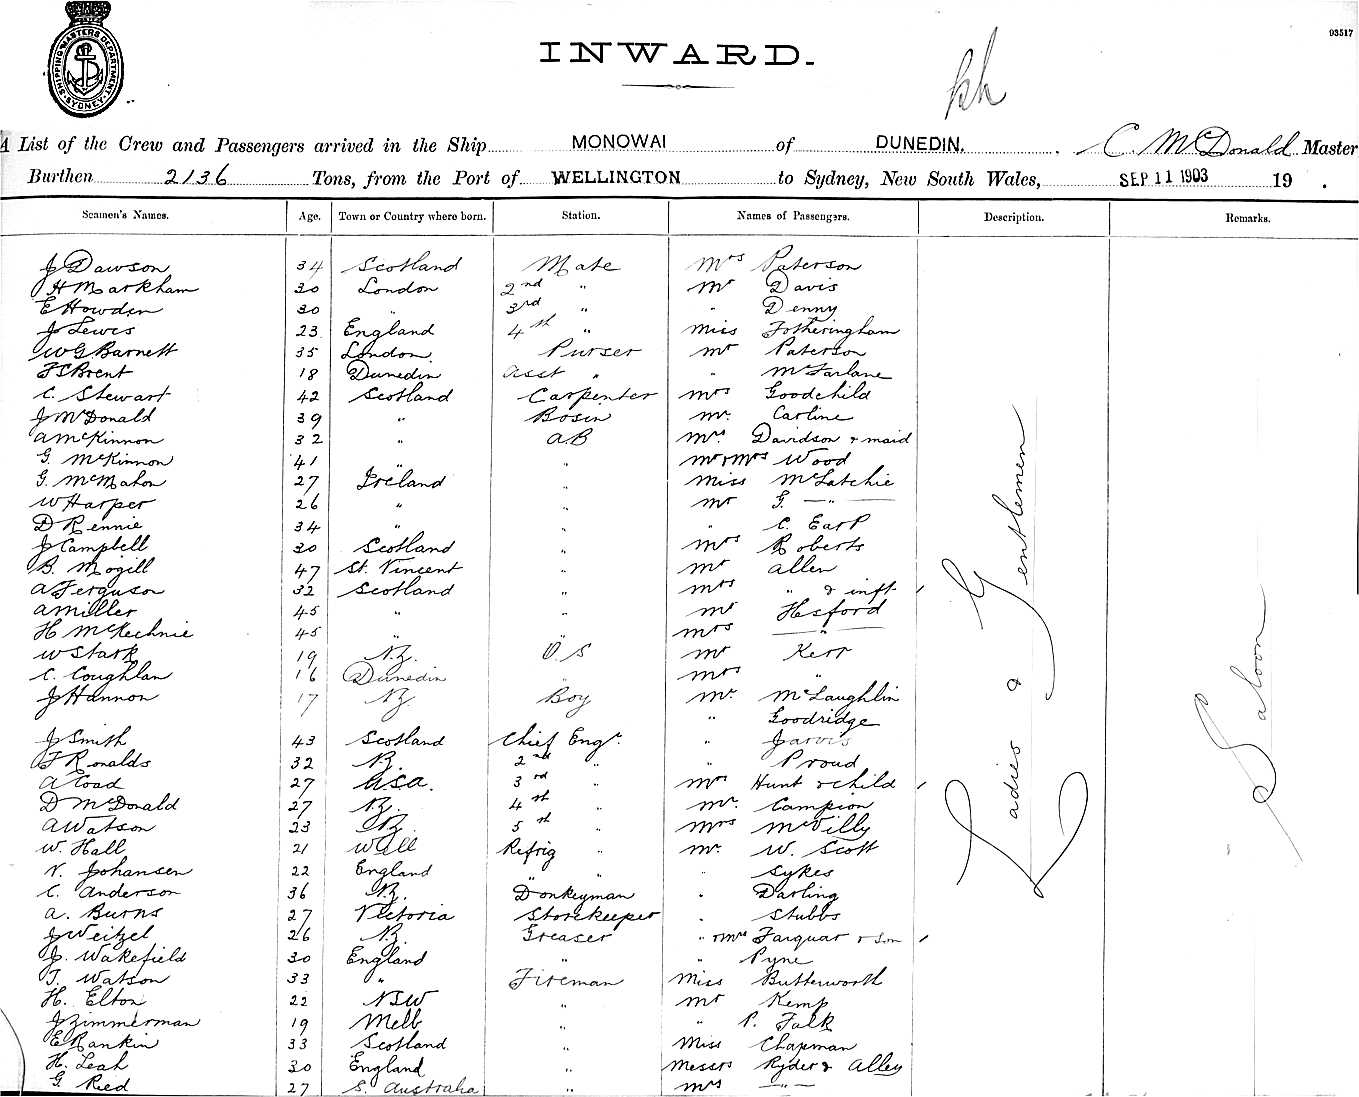 SHIPPING MASTERS DEPARTMENT. SYDNEY.
93517
INWARD.
A List of the Crew and Passengers arrived in the Ship MONOWAI of DUNEDIN. C. McDonald Master
Burthen 2136 Tons, from the Port of WELLINGTON to Sydney, New South Wales, SEP 11 1903 19 .
Seamen's Names. Age. Town or Country where born. Station. Names of Passengers. Description. Remarks.
J Dawson 34 Scotland Mate Mrs Paterson
H Markham 30 London 2nd " Mr Davis
E Howden 30 " 3rd " " Denny
J Lewis 23 England 4th " Miss Fotheringham
W G Barnett 35 London Purser Mr Paterson
F S Brent 18 Dunedin Asst " " McFarlane
C. Stewart 42 Scotland Carpenter Mrs Goodchild
J McDonald 39 " Bosin Mr. Carline
A McKinnon 32 " AB Mrs Davidson & maid
G. McKinnon 41 " " Mr & Mrs Wood
G. McMahon 27 Ireland " Miss McLatchie
W Harper 26 " " Mr G. — " —
D Rennie 34 " " " C. Earp
J Campbell 30 Scotland " Mrs Roberts
B. Mogill 47 St. Vincent " Mr Allen
A Ferguson 32 Scotland " Mrs " & inft
A Miller 45 " " Mr Hesford
H McKechnie 45 " " Mrs — " —
W Stark 19 N.Z. O.S Mr Kerr
C. Coughlan 16 Dunedin " Mrs "
J Hannon 17 NZ Boy Mr. McLaughlin
" Goodridge
J Smith 43 Scotland Chief Engr. " Jarvis
F Ronalds 32 N.Z. 2nd " " Proud
A Coad 27 USA. 3rd " Mrs Hunt & child
D McDonald 27 N.Z. 4th " Mr. Campion
A Watson 23 NZ 5th " Mrs McVilly
W. Hall 21 Refrig " Mr. W. Scott
V. Johansen 22 England " " " Sykes
C. Anderson 36 N.Z. Donkeyman " Darling
A. Burns 27 Victoria Storekeeper " Stubbs
J Weitzel 26 NZ Greaser " & Mrs Farquar & Son
J. Wakefield 30 England " " Pyne
T. Watson 33 " Fireman Miss Butterworth
H. Elton 22 NSW " Mr Kemp
J Zimmerman 19 Melb " " P. Falk
E Rankin 33 Scotland " Miss Chapman
H. Leah 30 England " Messrs Ryder & Alley
G Reed 27 S. Australia " Mrs — " —
Ladies & Gentlemen
Saloon